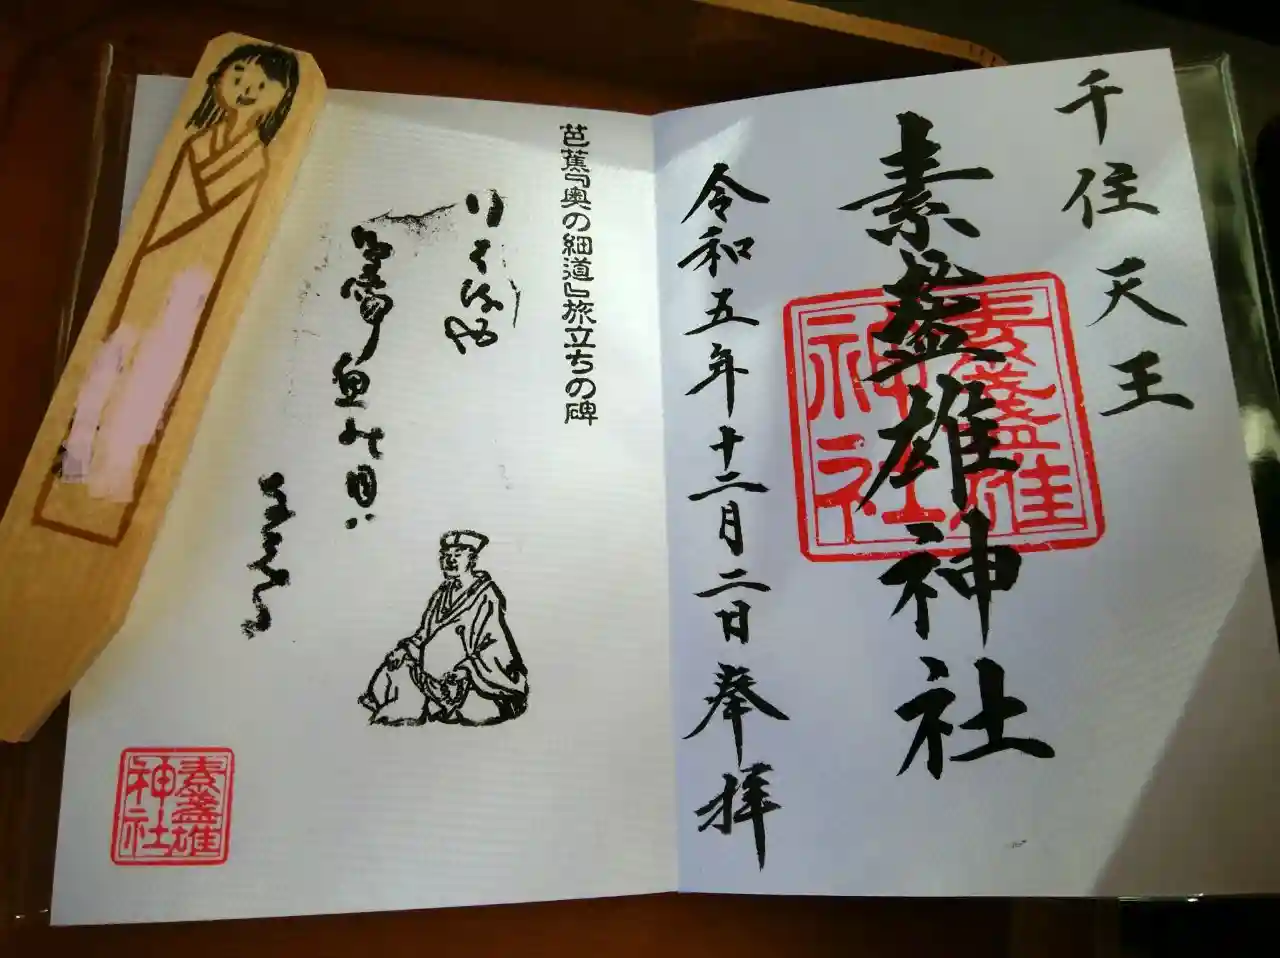 千住天王
素盞雄神社
素盞雄
神社
令和五年十二月二日奉拝
芭蕉『奥の細道』旅立ちの碑
行くはるや
鳥啼魚の目ハ
なみだ
素盞雄
神社